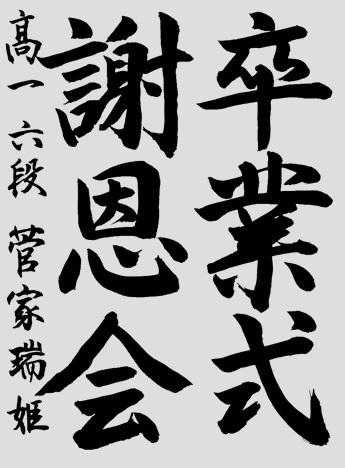 卒業式
謝恩会
高一 六段 菅家瑞姫